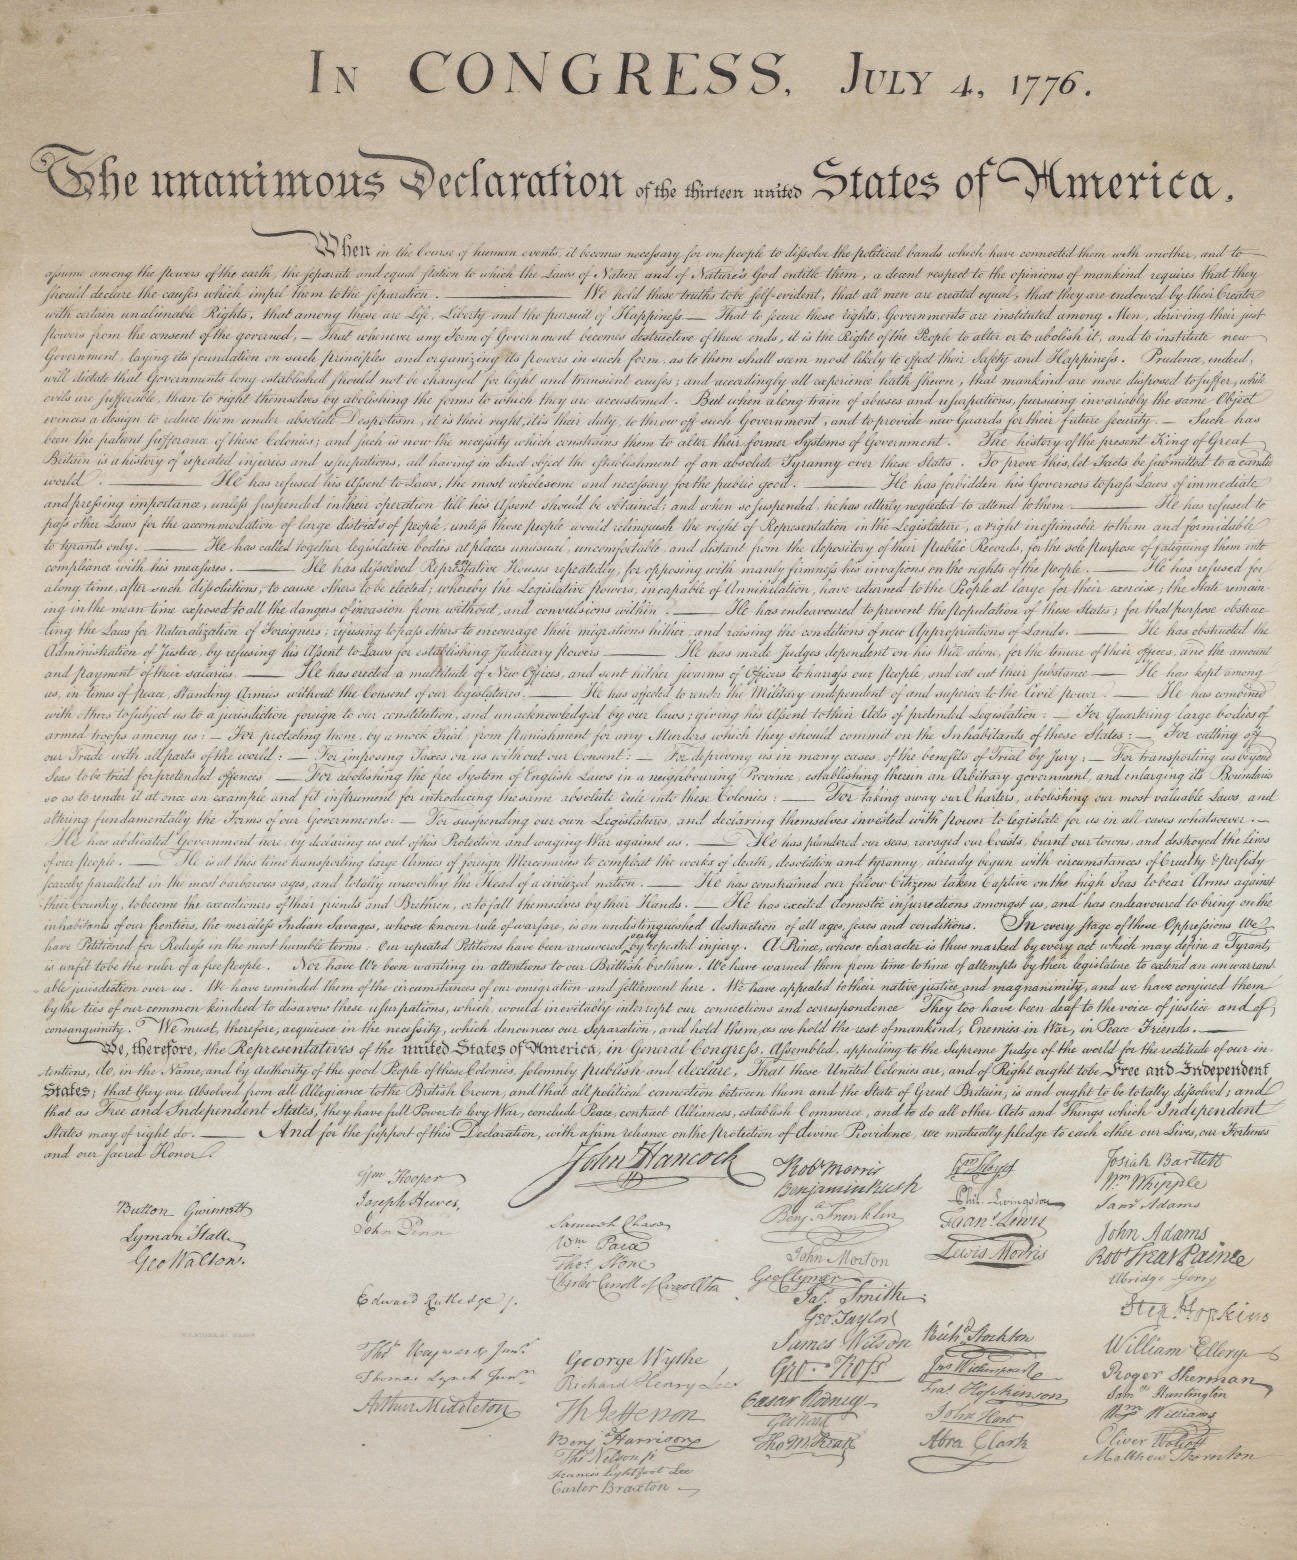 In CONGRESS, July 4, 1776.
The unanimous Declaration of the thirteen united States of America,
When in the Course of human events, it becomes necessary for one people to dissolve the political bands which have connected them with another, and to
assume among the powers of the earth, the separate and equal station to which the Laws of Nature and of Nature's God entitle them, a decent respect to the opinions of mankind requires that they
should declare the causes which impel them to the separation. — We hold these truths to be self-evident, that all men are created equal, that they are endowed by their Creator
with certain unalienable Rights, that among these are Life, Liberty and the pursuit of Happiness — That to secure these rights, Governments are instituted among Men, deriving their just
powers from the consent of the governed, — That whenever any Form of Government becomes destructive of these ends, it is the Right of the People to alter or to abolish it, and to institute new
Government, laying its foundation on such principles and organizing its powers in such form, as to them shall seem most likely to effect their Safety and Happiness. Prudence, indeed,
will dictate that Governments long established should not be changed for light and transient causes; and accordingly all experience hath shewn, that mankind are more disposed to suffer, while
evils are sufferable, than to right themselves by abolishing the forms to which they are accustomed. But when a long train of abuses and usurpations, pursuing invariably the same Object
evinces a design to reduce them under absolute Despotism, it is their right, it is their duty, to throw off such Government, and to provide new Guards for their future security. — Such has
been the patient sufferance of these Colonies; and such is now the necessity which constrains them to alter their former Systems of Government. The history of the present King of Great
Britain is a history of repeated injuries and usurpations, all having in direct object the establishment of an absolute Tyranny over these States. To prove this, let Facts be submitted to a candid
world. — He has refused his Assent to Laws, the most wholesome and necessary for the public good. — He has forbidden his Governors to pass Laws of immediate
and pressing importance, unless suspended in their operation till his Assent should be obtained; and when so suspended, he has utterly neglected to attend to them. — He has refused to
pass other Laws for the accommodation of large districts of people, unless those people would relinquish the right of Representation in the Legislature, a right inestimable to them and formidable
to tyrants only. — He has called together legislative bodies at places unusual, uncomfortable, and distant from the depository of their Public Records, for the sole purpose of fatiguing them into
compliance with his measures. — He has dissolved Representative Houses repeatedly, for opposing with manly firmness his invasions on the rights of the people. — He has refused for
a long time, after such dissolutions, to cause others to be elected; whereby the Legislative powers, incapable of Annihilation, have returned to the People at large for their exercise; the State remain-
ing in the mean time exposed to all the dangers of invasion from without, and convulsions within. — He has endeavoured to prevent the population of these States; for that purpose obstruc-
ting the Laws for Naturalization of Foreigners; refusing to pass others to encourage their migrations hither, and raising the conditions of new Appropriations of Lands. — He has obstructed the
Administration of Justice, by refusing his Assent to Laws for establishing Judiciary powers — He has made Judges dependent on his Will alone, for the tenure of their offices, and the amount
and payment of their salaries. — He has erected a multitude of New Offices, and sent hither swarms of Officers to harrass our people, and eat out their substance — He has kept among
us, in times of peace, Standing Armies without the Consent of our legislatures. — He has affected to render the Military independent of and superior to the Civil power. — He has combined
with others to subject us to a jurisdiction foreign to our constitution, and unacknowledged by our laws; giving his Assent to their Acts of pretended Legislation: — For quartering large bodies of
armed troops among us: — For protecting them, by a mock Trial, from punishment for any Murders which they should commit on the Inhabitants of these States: — For cutting off
our Trade with all parts of the world: — For imposing Taxes on us without our Consent: — For depriving us in many cases, of the benefits of Trial by Jury: — For transporting us beyond
Seas to be tried for pretended offences — For abolishing the free System of English Laws in a neighbouring Province, establishing therein an Arbitrary government, and enlarging its Boundaries
so as to render it at once an example and fit instrument for introducing the same absolute rule into these Colonies: — For taking away our Charters, abolishing our most valuable Laws, and
altering fundamentally the Forms of our Governments: — For suspending our own Legislatures, and declaring themselves invested with power to legislate for us in all cases whatsoever. —
He has abdicated Government here, by declaring us out of his Protection and waging War against us. — He has plundered our seas, ravaged our Coasts, burnt our towns, and destroyed the lives
of our people. — He is at this time transporting large Armies of foreign Mercenaries to compleat the works of death, desolation and tyranny, already begun with circumstances of Cruelty & perfidy
scarcely paralleled in the most barbarous ages, and totally unworthy the Head of a civilized nation. — He has constrained our fellow Citizens taken Captive on the high Seas to bear Arms against
their Country, to become the executioners of their friends and Brethren, or to fall themselves by their Hands. — He has excited domestic insurrections amongst us, and has endeavoured to bring on the
inhabitants of our frontiers, the merciless Indian Savages, whose known rule of warfare, is an undistinguished destruction of all ages, sexes and conditions. In every stage of these Oppressions We
have Petitioned for Redress in the most humble terms: Our repeated Petitions have been answered only by repeated injury. A Prince, whose character is thus marked by every act which may define a Tyrant,
is unfit to be the ruler of a free people. Nor have We been wanting in attentions to our Brittish brethren. We have warned them from time to time of attempts by their legislature to extend an unwarrant-
able jurisdiction over us. We have reminded them of the circumstances of our emigration and settlement here. We have appealed to their native justice and magnanimity, and we have conjured them
by the ties of our common kindred to disavow these usurpations, which, would inevitably interrupt our connections and correspondence They too have been deaf to the voice of justice and of
consanguinity. We must, therefore, acquiesce in the necessity, which denounces our Separation, and hold them, as we hold the rest of mankind, Enemies in War, in Peace Friends. —
We, therefore, the Representatives of the united States of America, in General Congress, Assembled, appealing to the Supreme Judge of the world for the rectitude of our in-
tentions, do, in the Name, and by Authority of the good People of these Colonies, solemnly publish and declare, That these United Colonies are, and of Right ought to be Free and Independent
States; that they are Absolved from all Allegiance to the British Crown, and that all political connection between them and the State of Great Britain, is and ought to be totally dissolved; and
that as Free and Independent States, they have full Power to levy War, conclude Peace, contract Alliances, establish Commerce, and to do all other Acts and Things which Independent
States may of right do. — And for the support of this Declaration, with a firm reliance on the protection of divine Providence, we mutually pledge to each other our Lives, our Fortunes
and our sacred Honor.
Button Gwinnett
Lyman Hall
Geo Walton.
Wm Hooper
Joseph Hewes,
John Penn
Edward Rutledge /.
Thos Heyward Junr.
Thomas Lynch Junr.
Arthur Middleton
John Hancock
Samuel Chase
Wm Paca
Thos. Stone
Charles Carroll of Carrollton
George Wythe
Richard Henry Lee
Th Jefferson
Benj Harrison
Thos Nelson jr.
Francis Lightfoot Lee
Carter Braxton
Robt Morris
Benjamin Rush
Benja. Franklin
John Morton
Geo Clymer
Jas. Smith
Geo. Taylor
James Wilson
Geo. Ross
Caesar Rodney
Geo Read
Tho M:Kean
Wm Floyd
Phil. Livingston
Frans. Lewis
Lewis Morris
Richd. Stockton
Jno Witherspoon
Fras. Hopkinson
John Hart
Abra Clark
Josiah Bartlett
Wm. Whipple
Saml Adams
John Adams
Robt Treat Paine
Elbridge Gerry
Step. Hopkins
William Ellery
Roger Sherman
Saml Huntington
Wm Williams
Oliver Wolcott
Matthew Thornton